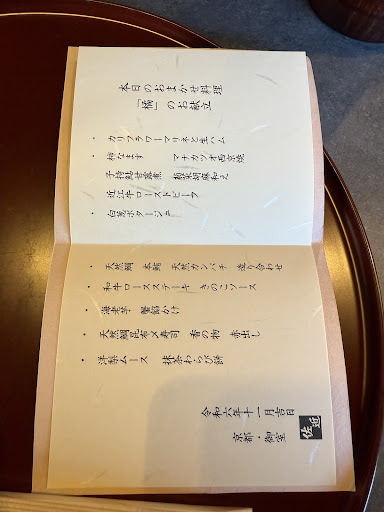 本日のおまかせ料理
「橘」のお献立
・ カリフラワーマリネと生ハム
・ 柿なます マナカツオ西京焼
子持鮎甘露煮 菊菜胡麻和え
近江牛ローストビーフ
・ 白葱ポタージュ
・ 天然鯛 本鮪 天然カンパチ 造り合わせ
・ 和牛ロースステーキ きのこソース
・ 海老芋 蟹餡かけ
・ 天然鯛昆布〆寿司 香の物 赤出し
・ 洋梨ムース 抹茶わらび餅
令和六年十一月吉日
京都・御室
佐近